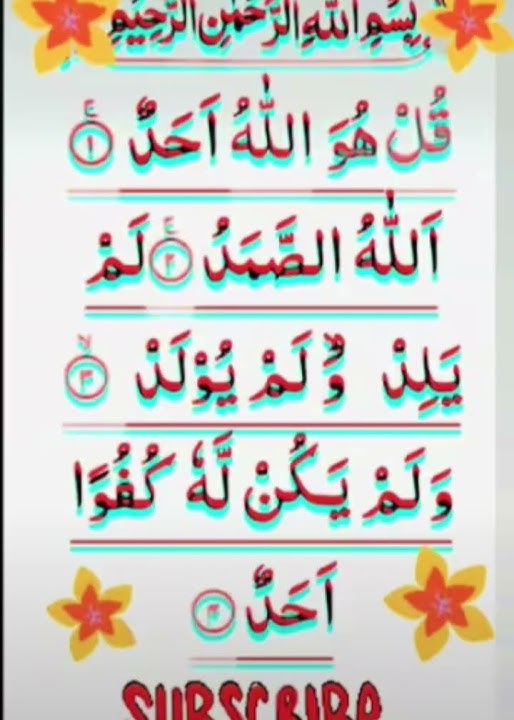 بِسْمِ اللّٰهِ الرَّحْمٰنِ الرَّحِيْمِ
قُلْ هُوَ اللّٰهُ اَحَدٌ ۚ ﴿۱﴾
اَللّٰهُ الصَّمَدُ ۚ ﴿۲﴾ لَمْ
يَلِدْ ۙ وَ لَمْ يُوْلَدْ ۙ ﴿۳﴾
وَلَمْ يَكُنْ لَّهٗ كُفُوًا
اَحَدٌ ﴿۴﴾
SUBSCRIBE